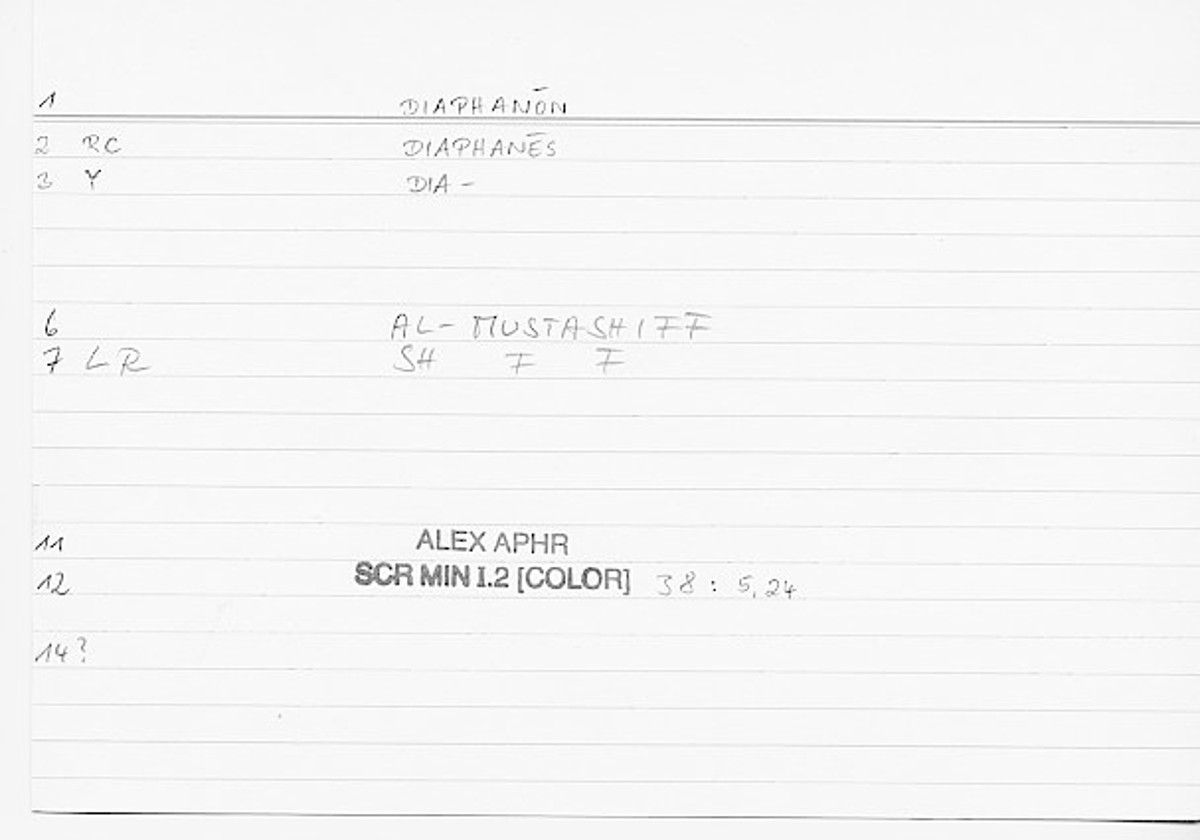 1 DIAPHANŌN
2 RC DIAPHANĒS
3 Y DIA-
6 AL- MUSTASHIFF
7 LR SH F F
11 ALEX APHR
12 SCR MIN I.2 [COLOR] 38 : 5,24
14?